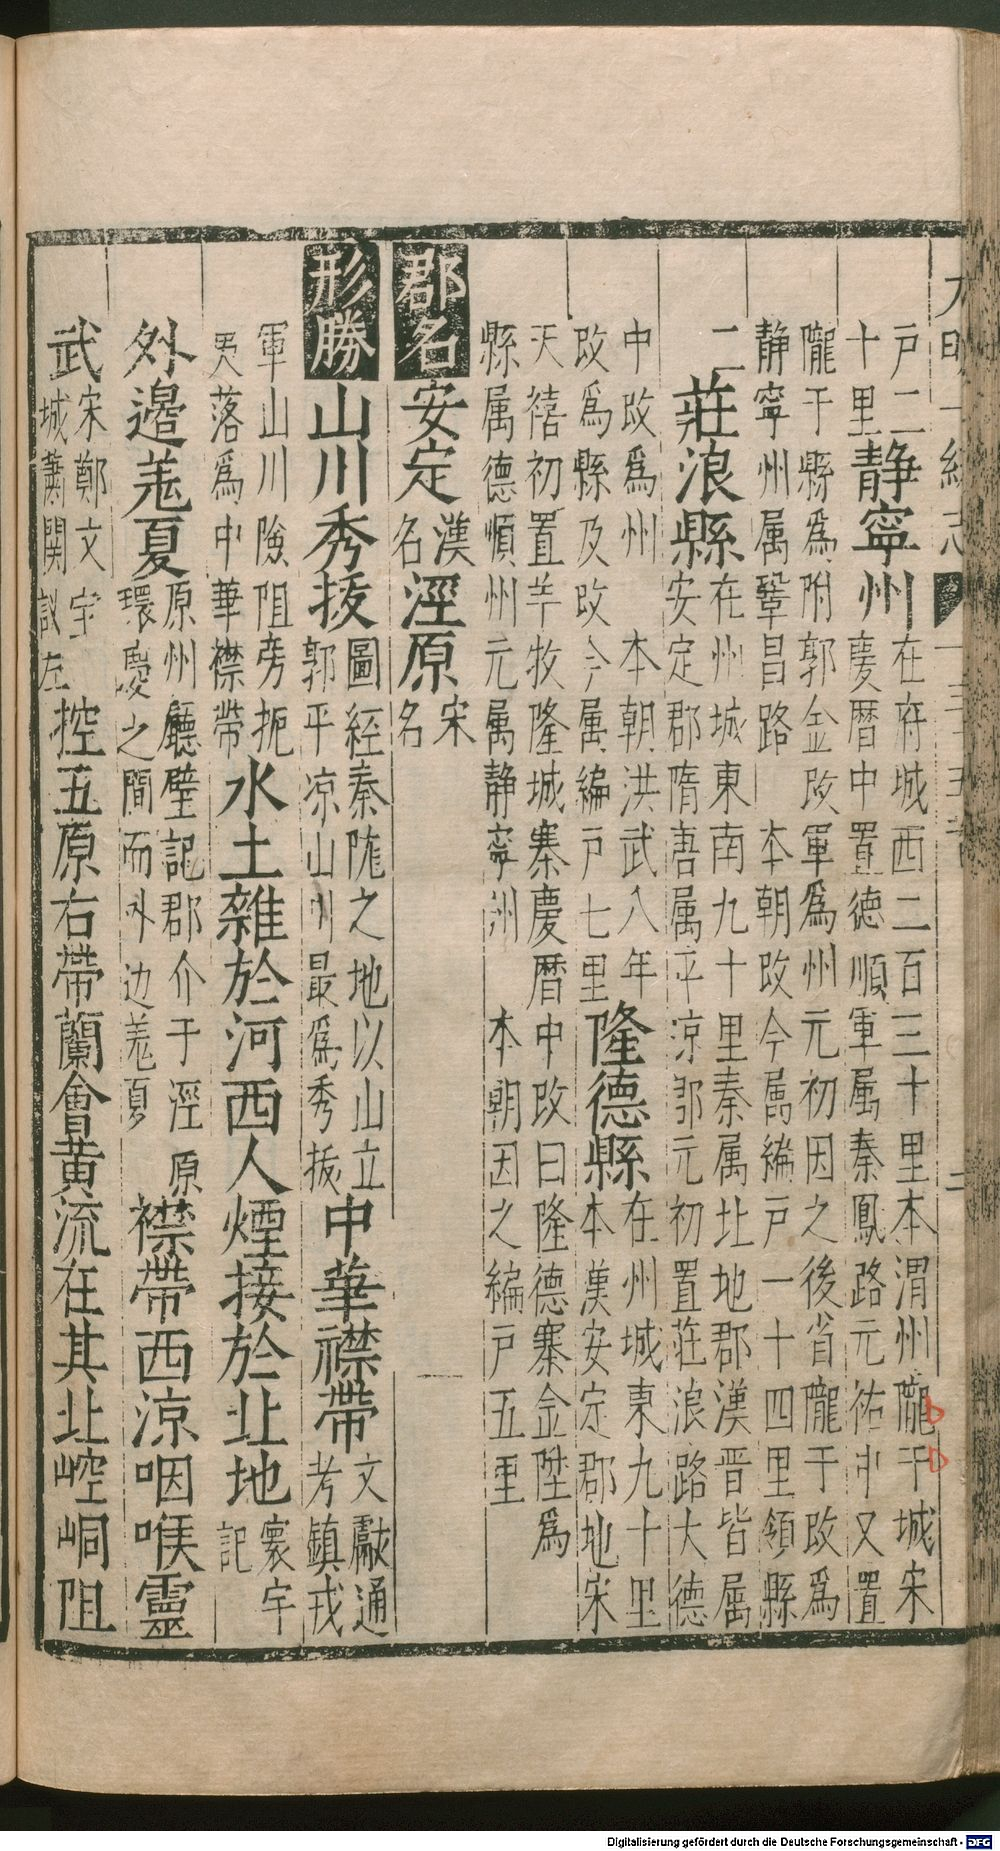 大明一統志 卷三十五 二
戸二
十里
静寧州
在府城西二百三十里本渭州隴干城宋
慶暦中置德順軍属秦鳳路元祐中又置
隴干縣為附郭金改軍為州元初因之後省隴干改為
静寧州属鞏昌路 本朝改今属編戸一十四里領縣
二莊浪縣
在州城東南九十里秦属北地郡漢晋皆属
安定郡隋唐属平凉郡元初置莊浪路大德
中改為州 本朝洪武八年
改為縣及改今属編戸七里
隆德縣
在州城東九十里
本漢安定郡地宋
天禧初置羊牧隆城寨慶暦中改曰隆德寨金陞為
縣属德順州元属静寧州 本朝因之編戸五里
郡名 安定
漢
名
涇原
宋
名
形勝 山川秀拔
圖經秦隴之地以山立
郭平凉山川最為秀拔
中華襟帶
文獻通
考鎮戎
軍山川險阻旁扼
夷落為中華襟帶
水土雜於河西人煙接於北地
寰宇
記
外邊羗夏
原州廳壁記郡介于涇原
環慶之間而外边羗夏
襟帶西凉咽喉靈
武
宋鄭文宝
城蕭關議左
控五原右帶蘭會黄流在其北崆峒阻
Digitalisierung gefördert durch die Deutsche Forschungsgemeinschaft - DFG